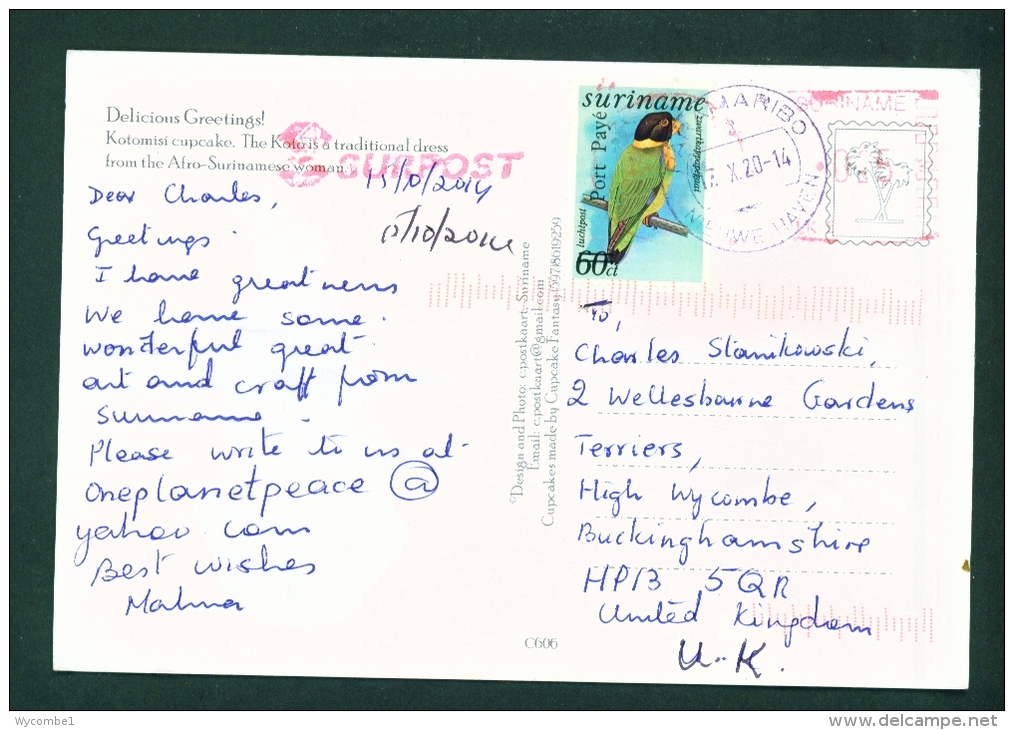 Delicious Greetings!
Kotomisi cupcake. The Koto is a traditional dress
from the Afro-Surinamese woman.
SURPOST
15/10/2014
Dear Charles,
Greetings.
I have great news
We have some
wonderful great
art and craft from
Suriname.
Please write to us at-
Oneplanetpeace @
yahoo.com
Best wishes
C606
©Design and Photo: c:postkaart, Suriname
Email: c.postkaart@gmail.com
Cupcakes made by Cupcake Fantasy (597)8619259
suriname
Port Payé
luchtpost
60ct
MARIBO
X.20-14
NIEUWE HAVEN
SURINAME
To,
Charles Stanikowski,
2 Wellesbourne Gardens
Terriers,
High Wycombe,
Buckinghamshire
HP13 5QR
United Kingdom
U.K.
Wycombe1
www.delcampe.net